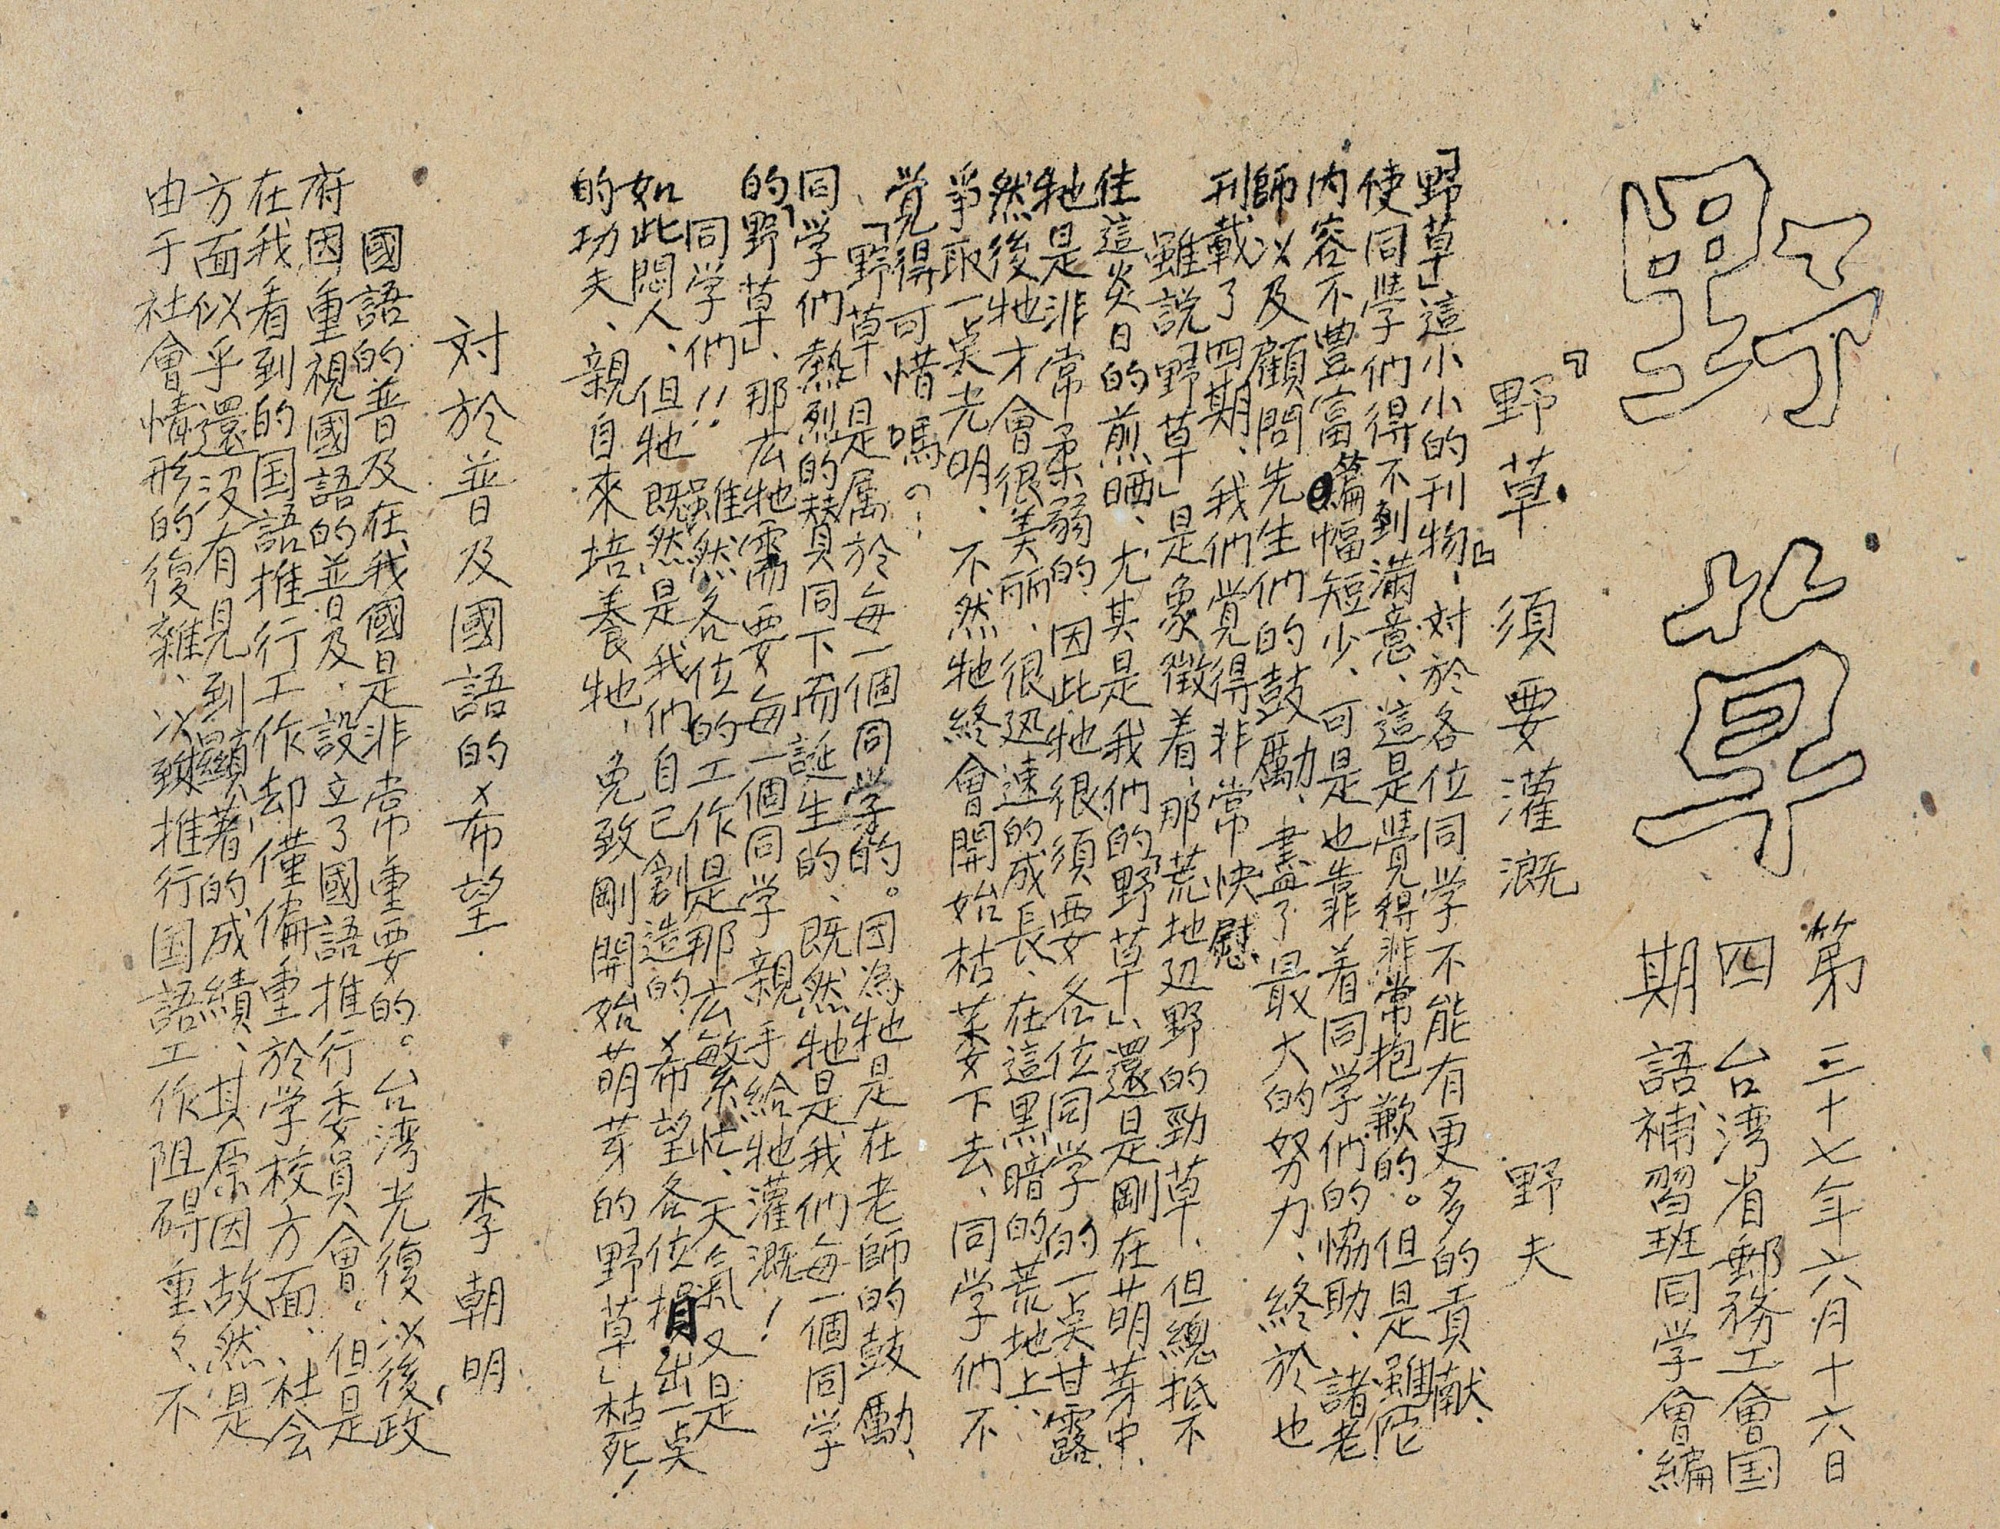 野草
第四期
三十七年六月十六日
台湾省郵務工會国
語補習班同学會編
『野草』須要灌溉　野夫
「野草」這小小的刊物、対於各位同学不能有更多的貢献、
使同學们得不到滿意、這是覺得非常抱歉的。但是雖然
内容不豊富篇幅短少、可是也靠着同学们的協助、諸老
師以及顧問先生们的鼓勵、盡了最大的努力、終於也
刊載了四期、我们覚得非常快慰
雖説「野草」是象徵着、那荒地辺野的勁草、但總抵不
住這炎日的煎晒、尤其是我们的「野草」、還是剛在萌芽中、
牠是非常柔弱的、因此牠很須要各位同学的一点甘露、
然後牠才會很美丽、很迅速的成長、在這黑暗的荒地上、
爭取一点光明、不然牠終會開始枯萎下去、同学们不
覚得可惜嗎？
「野草」是属於每一個同学的。因為牠是在老師的鼓勵、
同学們熱烈的賛同下而誕生的、既然牠是我们每一個同学
的「野草」、那広牠需要每一個同学親手給牠灌溉！
同学們!!雖然各位的工作是那広繁忙、天氣又是
如此悶人、但牠既然是我们自己創造的、希望各位損出一点
的功夫、親自來培養牠、免致剛開始萌芽的野草」枯死！
対於普及國語的希望．　李朝明
國語的普及在我國是非常重要的。台湾光復以後、政
府因重視國語的普及、設立了國語推行委員會。但是
在我看到的国語推行工作却僅偏重於学校方面、社会
方面似乎還没有見到顯著的成績、其原因故然是
由于社會情形的復雜、以致推行国語工作阻碍重々、不